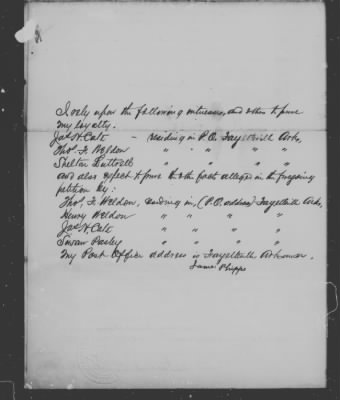 I rely upon the following witnesses, and others to prove
my loyalty.
Jas. H. Cate — residing in P.O. Fayetteville Arks,
Thos. F. Weldon " " " " "
Shelton Luttrell " " " " "
and also expect to prove the other facts alleged in the foregoing
petition by:
Thos. F. Weldon, residing in, (P.O. address) Fayetteville Arks,
Henry Weldon " " " "
Jas. H. Cate " " " "
Susan Pasley " " " "
My Post Office address is Fayetteville Arkansas.
James Phipps